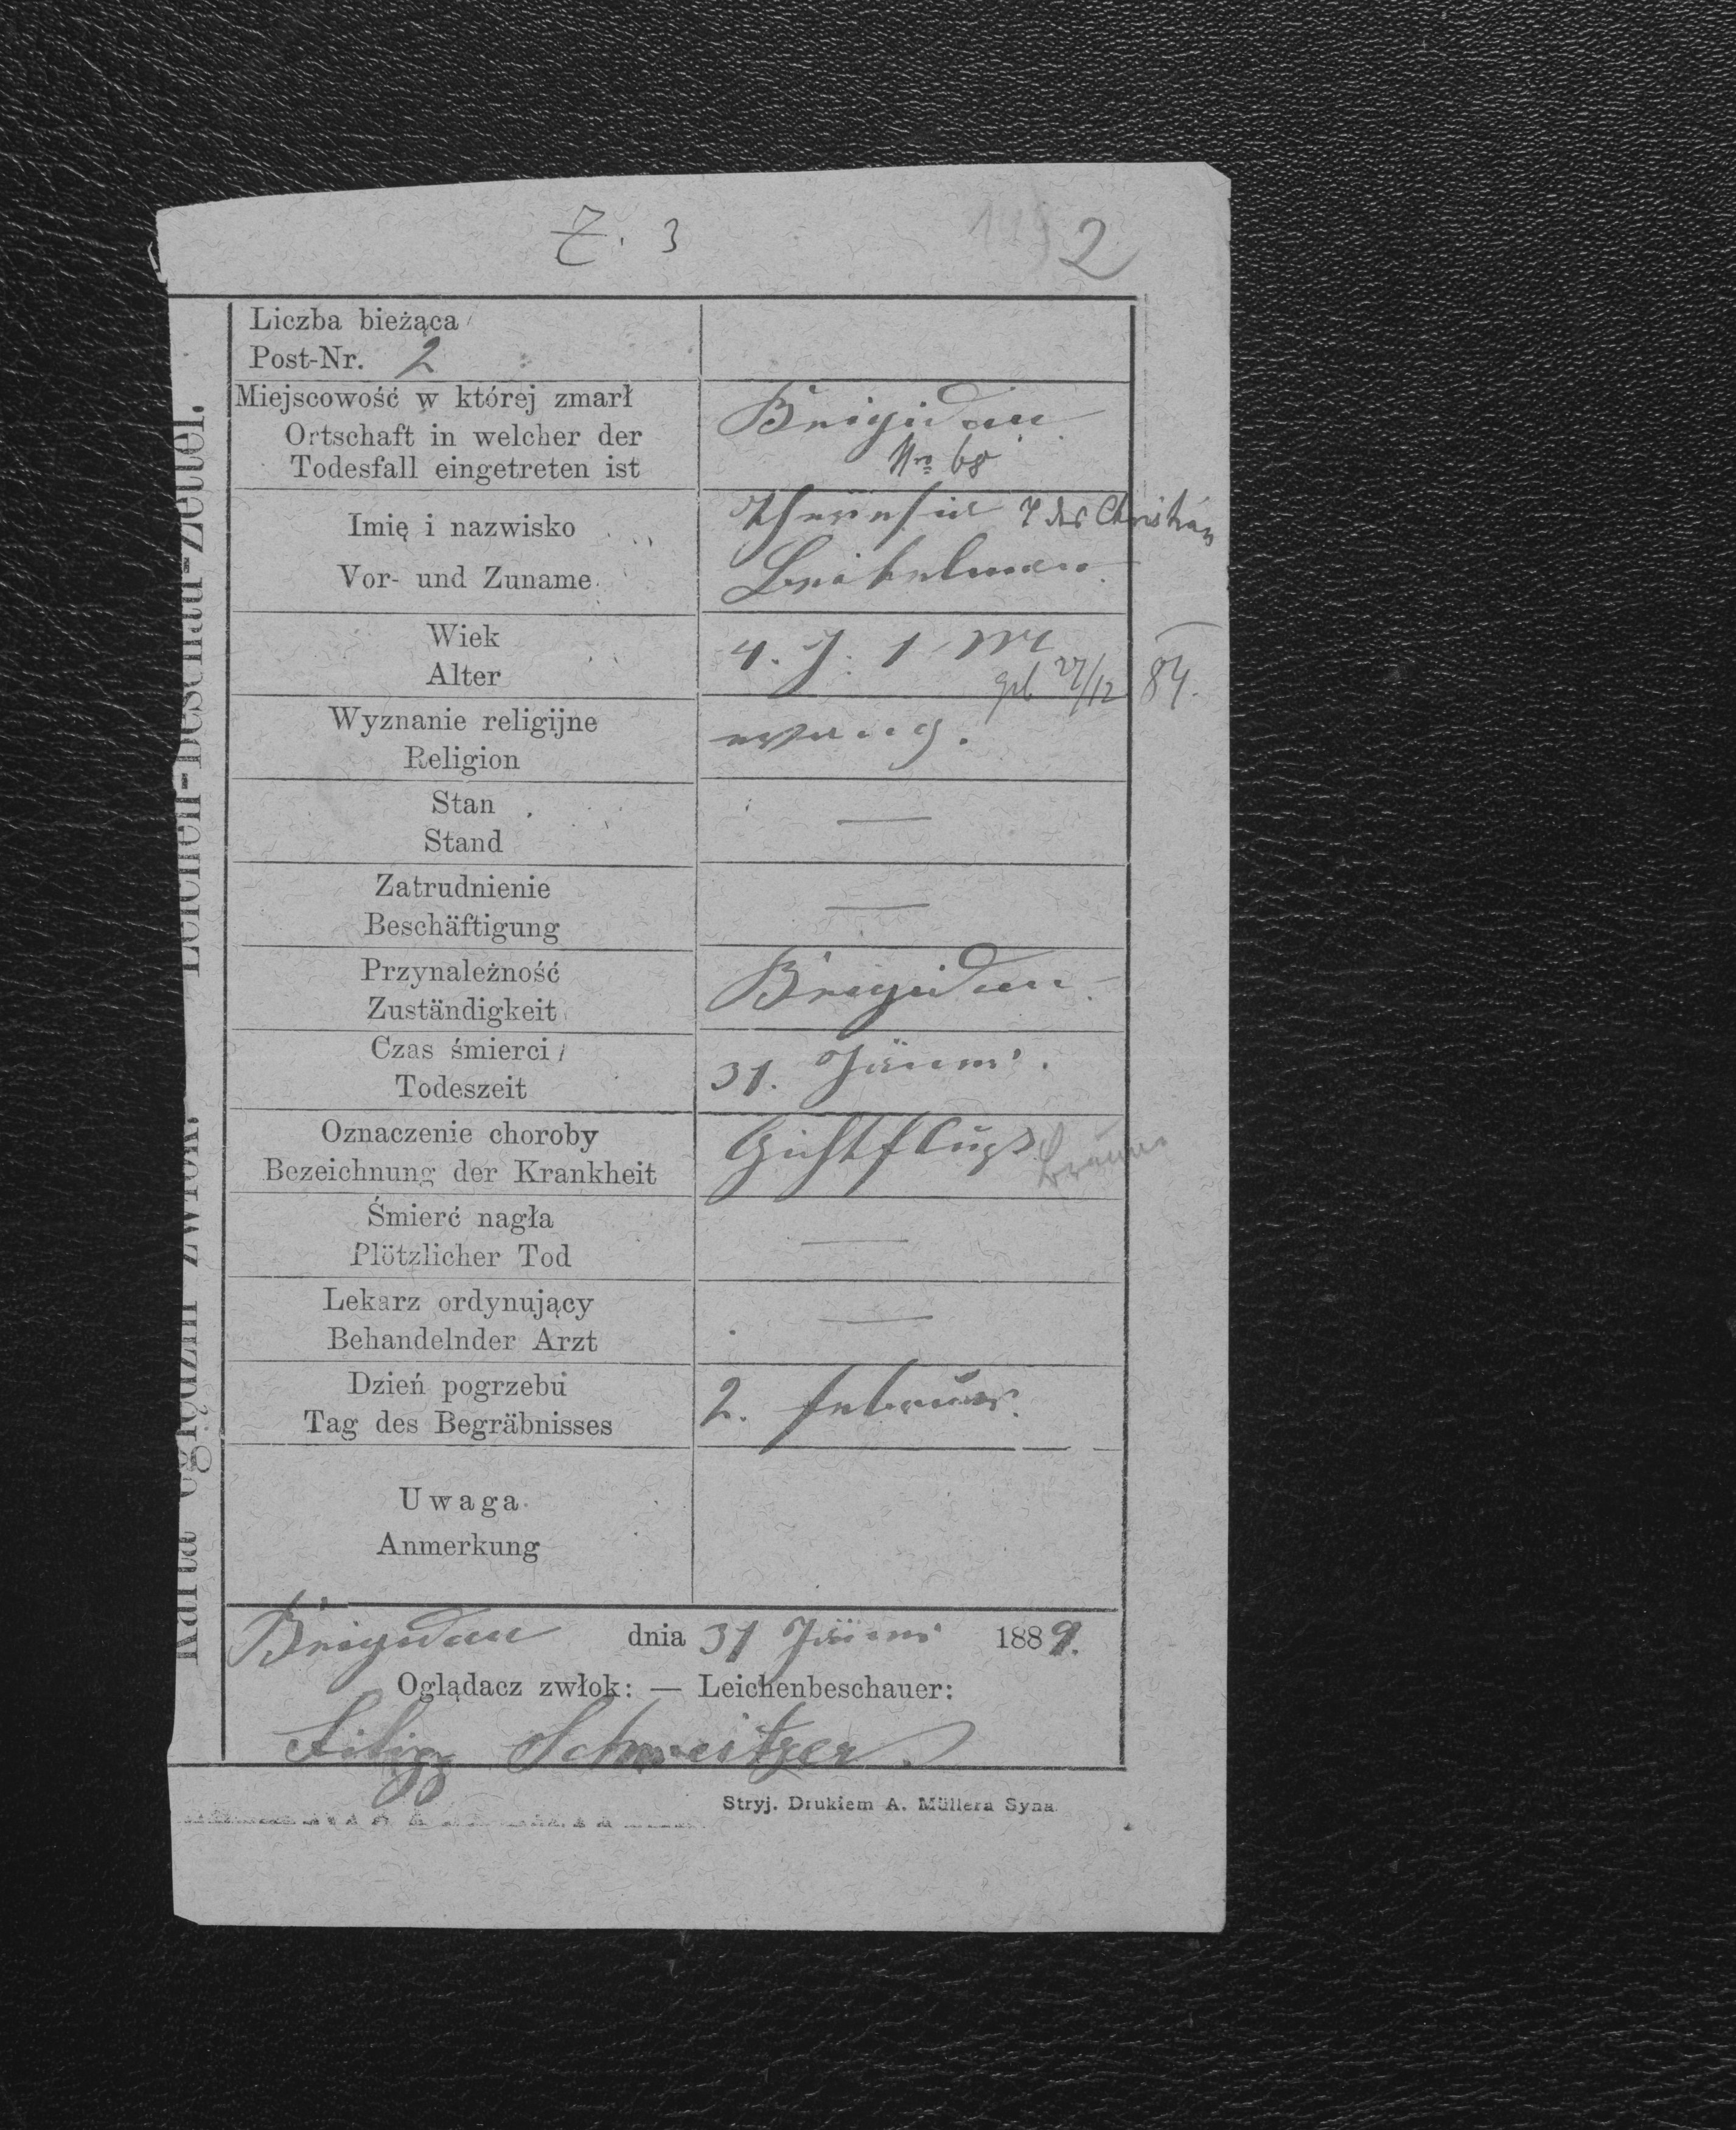 Z. 3
2
Karta oględzin zwłok. — Leichen-Beschau-Zettel.
Liczba bieżąca
Post-Nr. 2
Miejscowość w której zmarł
Ortschaft in welcher der
Todesfall eingetreten ist
Brigidau
Nro 68
Imię i nazwisko
Vor- und Zuname
Theresie T des Christian
Wiek
Alter
4. J. 1 M
geb 27/12 84.
Wyznanie religijne
Religion
evang.
Stan
Stand
—
Zatrudnienie
Beschäftigung
—
Przynależność
Zuständigkeit
Brigidau
Czas śmierci
Todeszeit
31. Jänner.
Oznaczenie choroby
Bezeichnung der Krankheit
Gichtfluß
Śmierć nagła
Plötzlicher Tod
—
Lekarz ordynujący
Behandelnder Arzt
—
Dzień pogrzebu
Tag des Begräbnisses
2. februar.
Uwaga
Anmerkung
Brigidau dnia 31 Jänner 1889.
Oglądacz zwłok: — Leichenbeschauer:
Filipp Schweitzer.
Stryj. Drukiem A. Müllera Syna